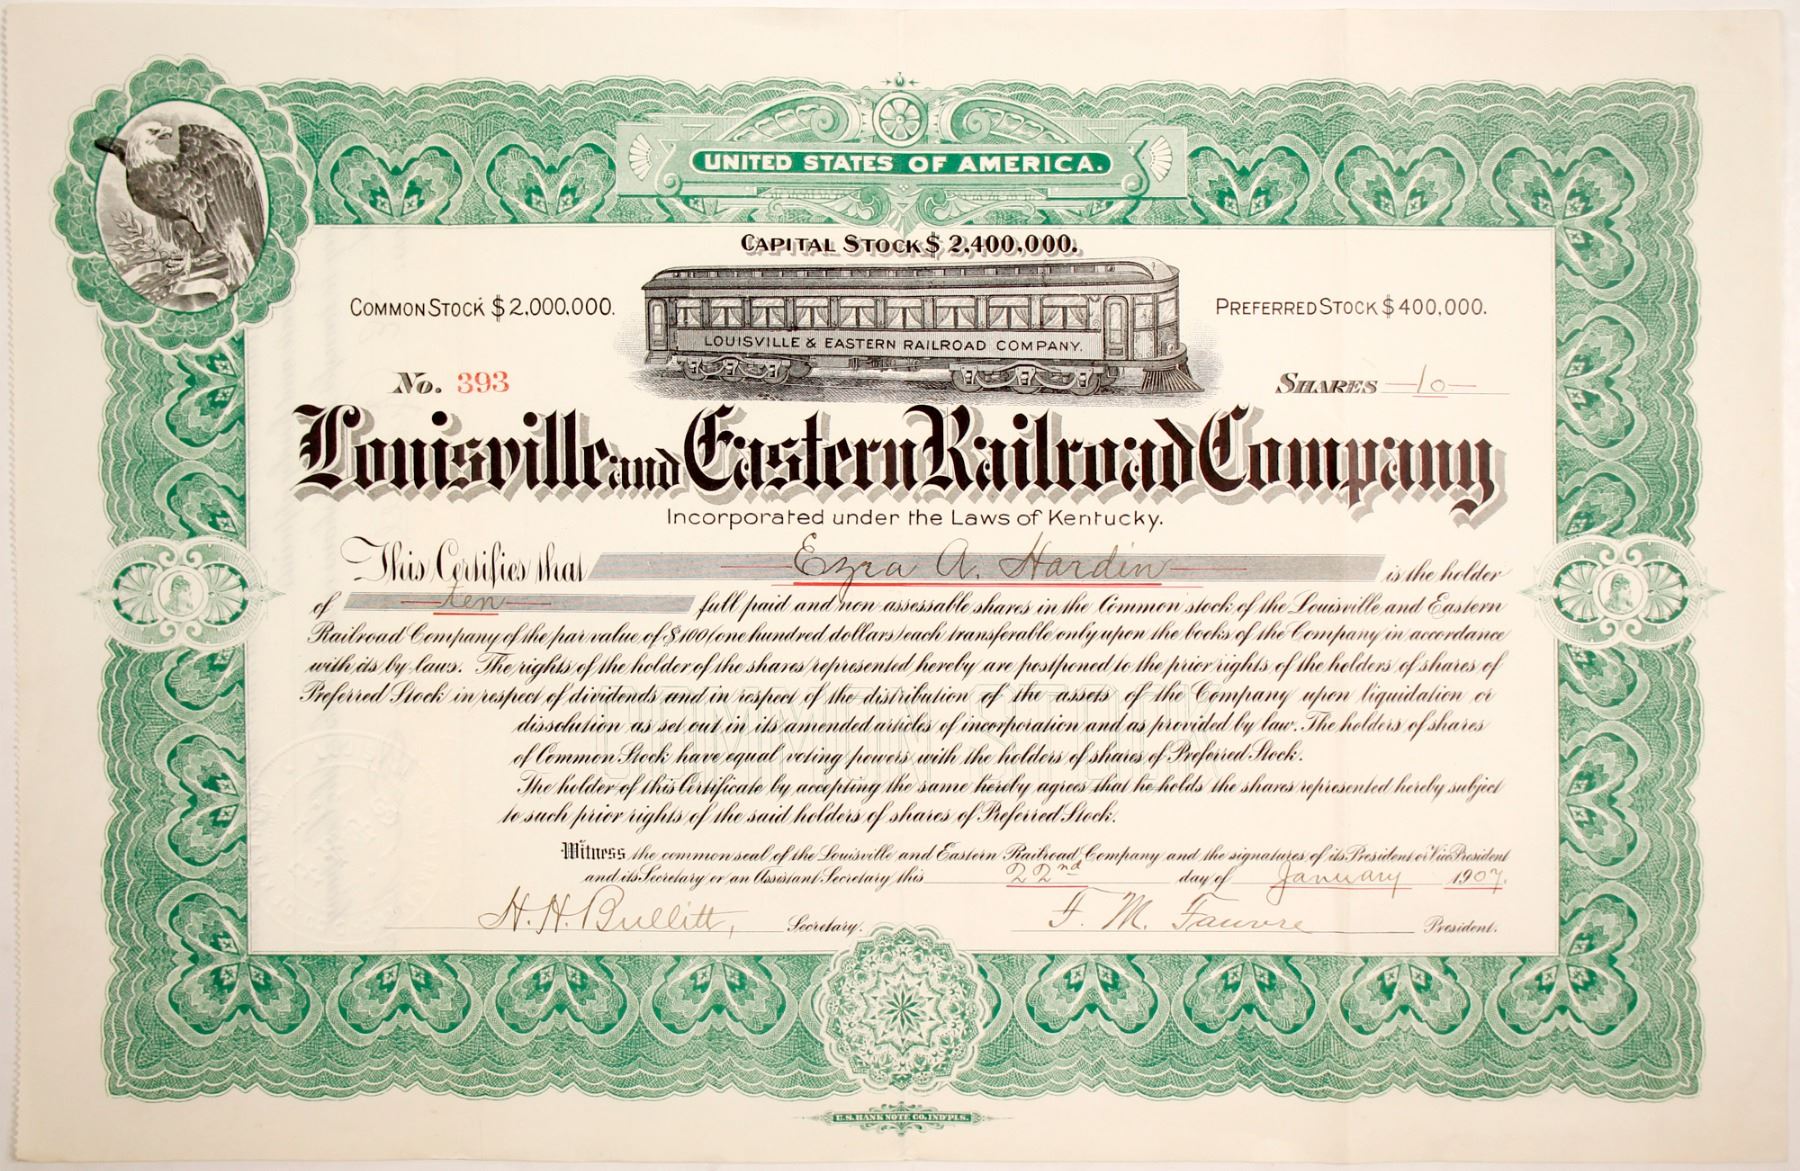 UNITED STATES OF AMERICA.
CAPITAL STOCK $ 2,400,000.
COMMON STOCK $ 2,000,000.
PREFERRED STOCK $ 400,000.
LOUISVILLE & EASTERN RAILROAD COMPANY.
No. 393
SHARES 10
Louisville and Eastern Railroad Company
Incorporated under the Laws of Kentucky.
This Certifies that Ezra A. Hardin is the holder
of ten full paid and non-assessable shares in the Common stock of the Louisville and Eastern
Railroad Company of the par value of $100 (one hundred dollars) each transferable only upon the books of the Company in accordance
with its by laws. The rights of the holder of the shares represented hereby are postponed to the prior rights of the holders of shares of
Preferred Stock in respect of dividends and in respect of the distribution of the assets of the Company upon liquidation or
dissolution as set out in its amended articles of incorporation and as provided by law. The holders of shares
of Common Stock have equal voting powers with the holders of shares of Preferred Stock.
The holder of this Certificate by accepting the same hereby agrees that he holds the shares represented hereby subject
to such prior rights of the said holders of shares of Preferred Stock.
Witness the common seal of the Louisville and Eastern Railroad Company and the signatures of its President or Vice President
and its Secretary or an Assistant Secretary this 22nd day of January 1907.
H. H. Bullitt, Secretary.
F. M. Fauvre President.
U.S. BANK NOTE CO. IND'PL'S.